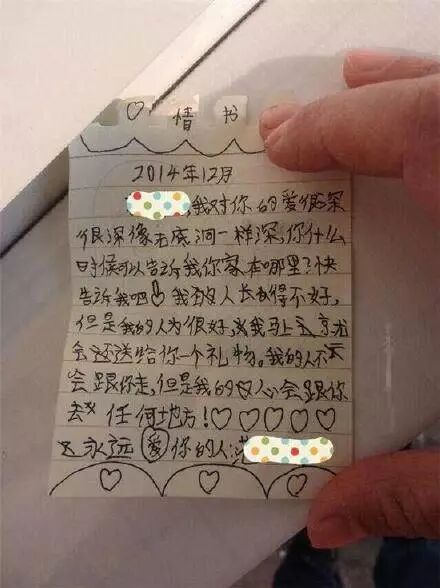 ♡情书
2014年12月
,我对你的爱很深
很深像无底洞一样深,你什么
时候可以告诉我你家在哪里?快
告诉我吧!我的人长得不好,
但是我的人为很好,我马上
会还送给你一个礼物。我的人不
会跟你走,但是我的心会跟你
去 任何地方!♡♡♡♡♡
永远爱你的人: